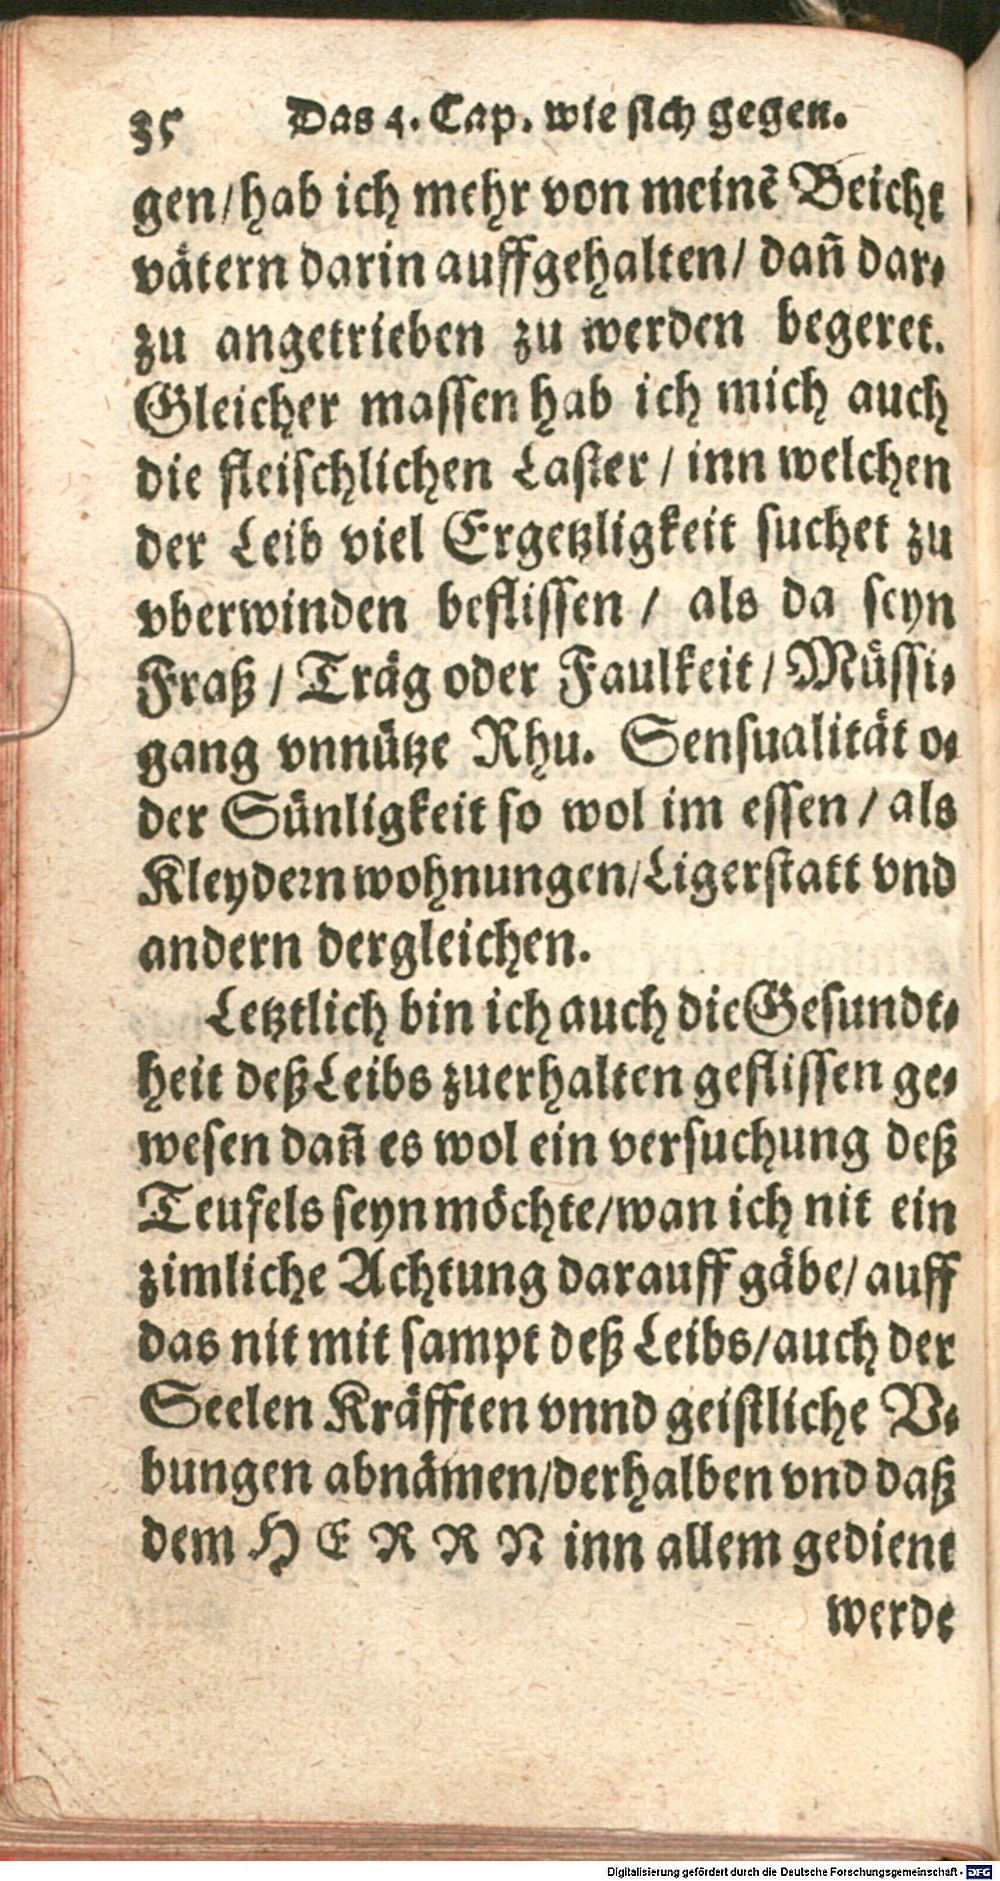 35 Das 4. Cap. wie sich gegen.
gen/hab ich mehr von meinē Beicht
vätern darin auffgehalten/ dañ dar⸗
zu angetrieben zu werden begeret.
Gleicher massen hab ich mich auch
die fleischlichen Laster / inn welchen
der Leib viel Ergetzligkeit suchet zu
vberwinden beflissen / als da seyn
Fraß / Träg oder Faulkeit / Müssi⸗
gang vnnütze Rhu. Sensualität o⸗
der Sünligkeit so wol im essen / als
Kleydern wohnungen/Ligerstatt vnd
andern dergleichen.
Letztlich bin ich auch die Gesundt⸗
heit deß Leibs zuerhalten geflissen ge⸗
wesen dañ es wol ein versuchung deß
Teufels seyn möchte/wan ich nit ein
zimliche Achtung darauff gäbe/ auff
das nit mit sampt deß Leibs/auch der
Seelen Kräfften vnnd geistliche V⸗
bungen abnämen/derhalben vnd daß
dem HERRN inn allem gedient
werde
Digitalisierung gefördert durch die Deutsche Forschungsgemeinschaft - DFG